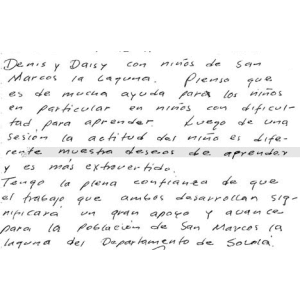 Denis y Daisy con niños de San
Marcos la Laguna. Pienso que
es de mucha ayuda para los niños
en particular en niños con dificul-
tad para aprender. Luego de una
sesión la actitud del niño es dife-
rente muestra deseos de aprender
y es más extrovertido.
Tengo la plena confianza de que
el trabajo que ambos desarrollan sig-
nificará un gran apoyo y avance
para la población de San Marcos la
laguna del Departamento de Sololá.